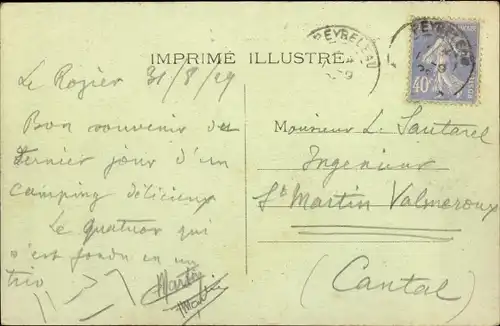 IMPRIMÉ ILLUSTRÉ
PEYRELEAU
PEYRELEAU
40c
Le Rozier 31/8/29
Bon souvenir du
dernier jour d'un
camping délicieux
Le quatuor qui
s'est fondu en un
trio
Martin
Monsieur L. Sautarel
Ingenieur
St Martin Valmeroux
(Cantal)